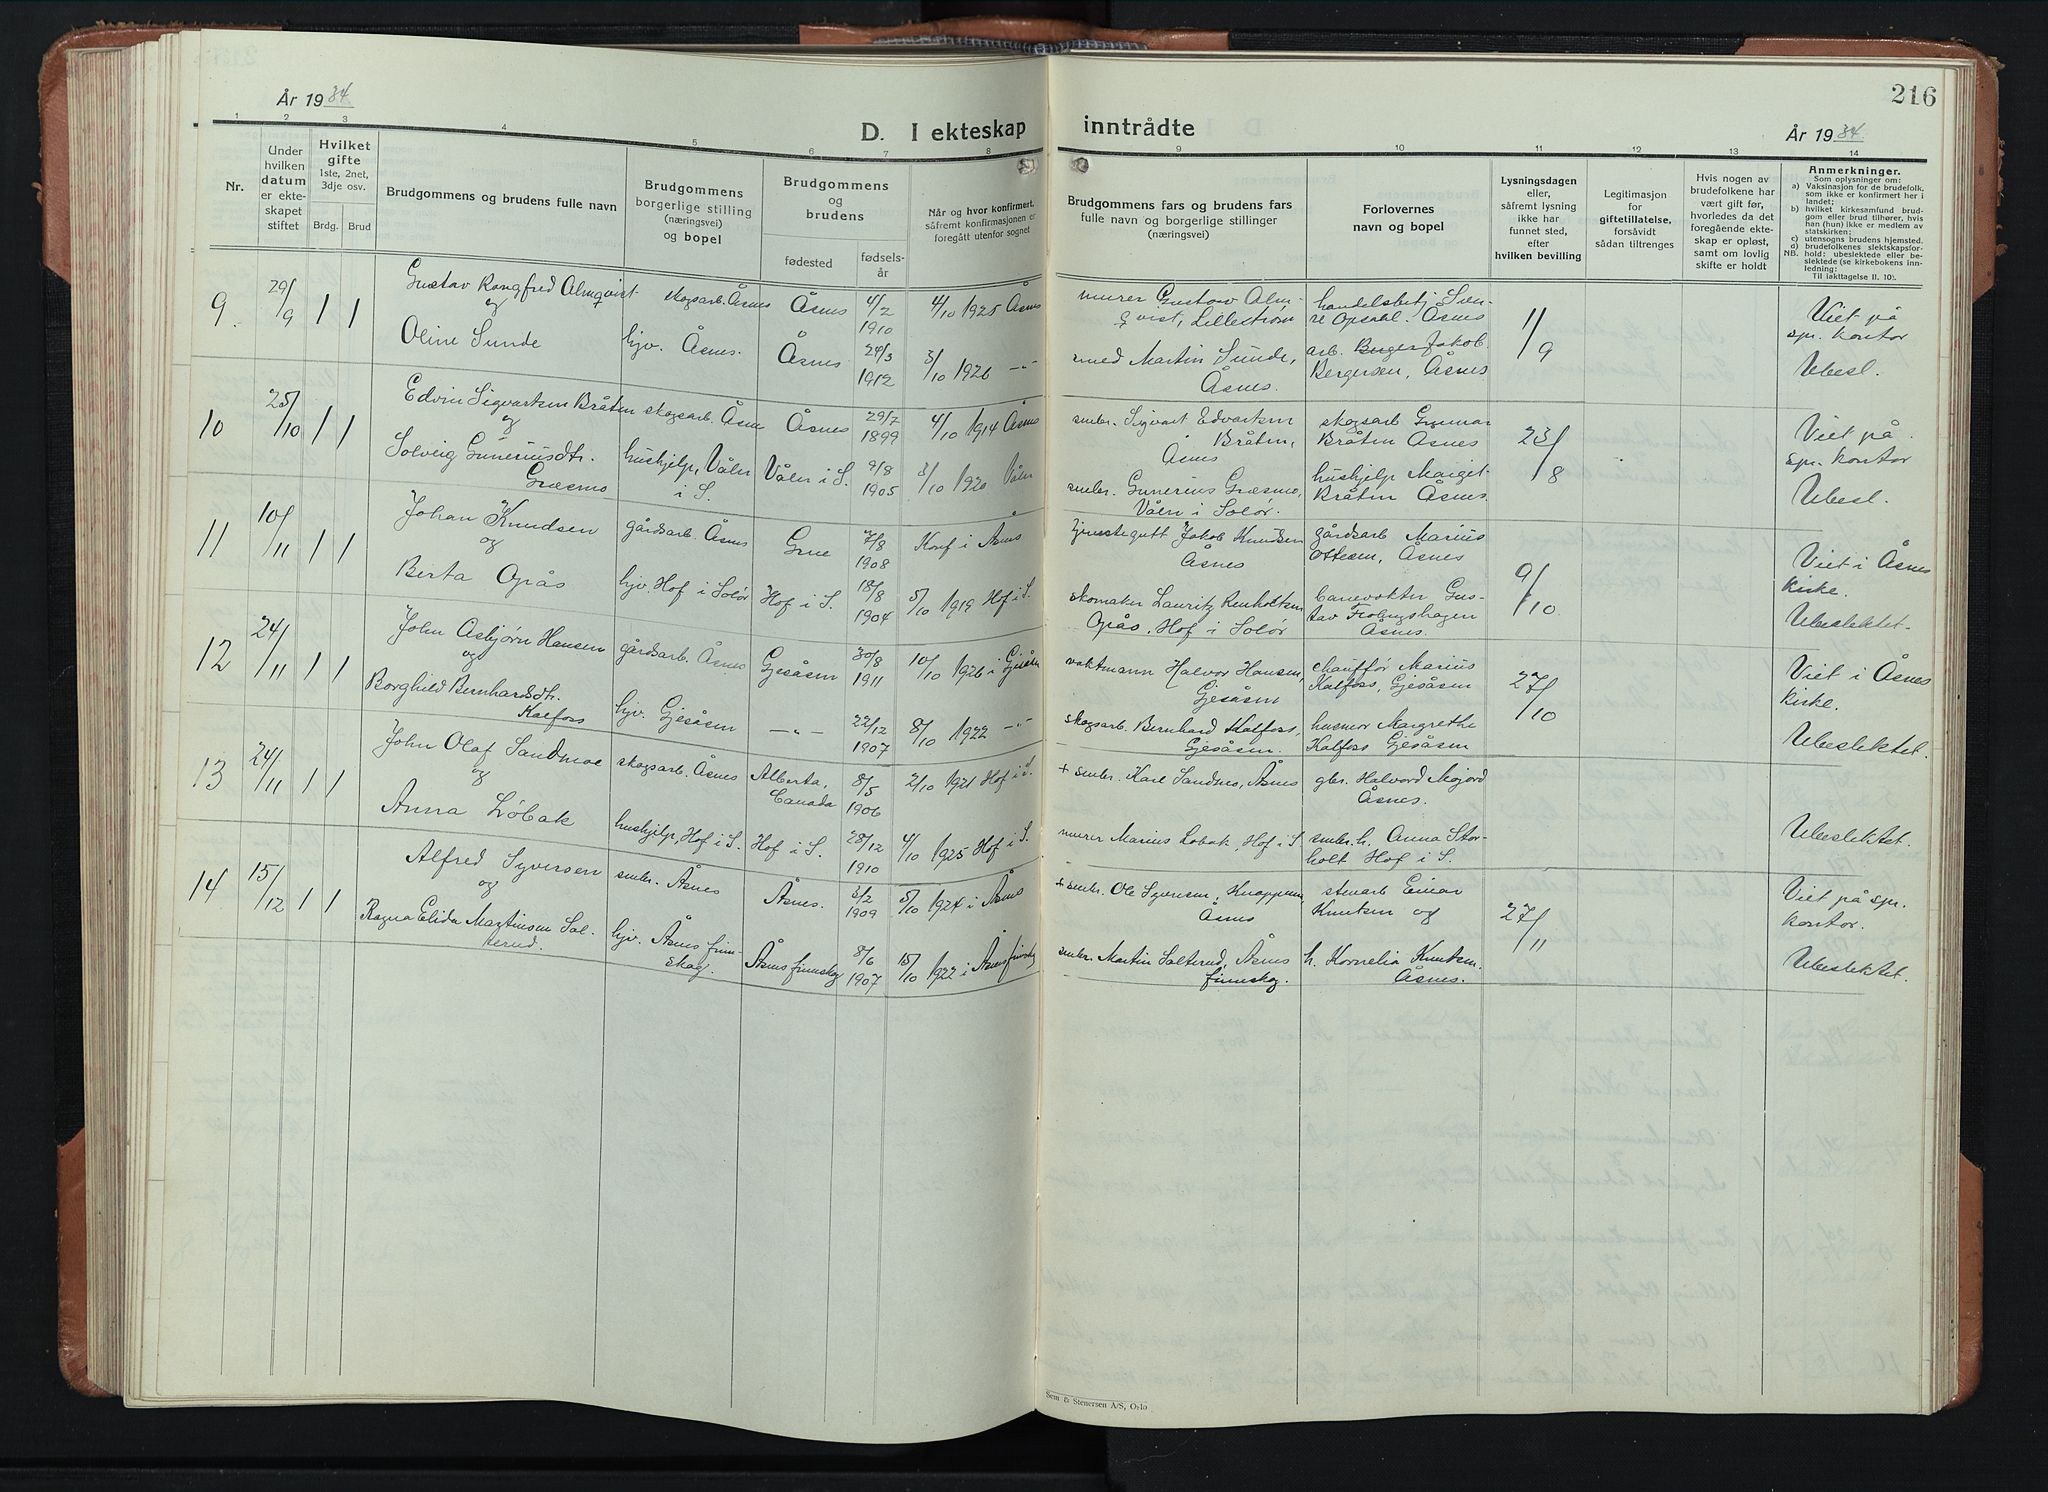 216
År 1934
D. I ekteskap inntrådte
År 1934
1 2 3 4 5 6 7 8 9 10 11 12 13 14
Nr.
Under hvilken datum er ekteskapet stiftet
Hvilket gifte 1ste, 2net, 3dje osv.
Brdg. Brud
Brudgommens og brudens fulle navn
Brudgommens borgerlige stilling (næringsvei) og bopel
Brudgommens og brudens
fødested
fødselsår
Når og hvor konfirmert, såfremt konfirmasjonen er foregått utenfor sognet
Brudgommens fars og brudens fars fulle navn og borgerlige stillinger (næringsvei)
Forlovernes navn og bopel
Lysningsdagen eller, såfremt lysning ikke har funnet sted, efter hvilken bevilling
Legitimasjon for giftetillatelse, forsåvidt sådan tiltrenges
Hvis nogen av brudefolkene har vært gift før, hvorledes da det foregående ekteskap er opløst, samt om lovlig skifte er holdt
Anmerkninger.
Som oplysninger om:
a) Vaksinasjon for de brudefolk, som ikke er konfirmert her i landet;
b) hvilket kirkesamfund brudgom eller brud tilhører, hvis han (hun) ikke er medlem av statskirken;
c) utensogns brudens hjemsted.
d) brudefolkenes slektskapsforhold: ubeslektede eller beslektede (se kirkebokens innledning:
NB. Til iakttagelse II. 10).
9 29/9 1 1 Gustav Rangfred Almqvist skogsarb. Åsnes Åsnes 4/2 1910 4/10 1925 Åsnes murer Gustav Almqvist, Lillestrøm handelsbetj. Opsahl. Åsnes 11/9 Viet på spr. kontor
og
Oline Sunde hjv. Åsnes. Åsnes 24/3 1912 3/10 1926 —"— smed Martin Sunde, Åsnes. arb. Jakob Bergersen, Åsnes Ubesl.
10 25/10 1 1 Edvin Sigvartsen Bråten skogsarb. Åsnes Åsnes 29/7 1899 4/10 1914 Åsnes småbr. Sigvart Edvartsen Bråten, Åsnes skogsarb Gunnar Bråten Åsnes 23/8 Viet på spr. kontor
og
Solveig Guneriusdtr. Græsmo hushjelp, Våler i S. Våler i S. 9/8 1905 3/10 1920 Våler småbr. Gunerius Græsmo, Våler i Solør. hushjelp Marget Bråten Åsnes. Ubesl.
11 10/11 1 1 Johan Knudsen gårdsarb. Åsnes Grue 7/8 1908 Konf i Åsnes tjenestegutt Jakob Knudsen Åsnes gårdsarb Marius Ottesen, Åsnes 9/10 Viet i Åsnes kirke.
og
Berta Opås hjv. Hof i Solør Hof i S. 18/8 1904 5/10 1919 Hof i S. skomaker Lauritz Renholtsen Opås, Hof i Solør banevokter Gustav Frobergshagen Åsnes. Ubeslektet.
12 24/11 1 1 John Asbjørn Hansen gårdsarb. Åsnes Gjesåsen 30/8 1911 10/10 1926 i Gjesåsen vaktmann Halvor Hansen, Gjesåsen chauffør Marius Kalfoss, Gjesåsen 27/10 Viet i Åsnes kirke.
og
Borghild Bernhardsdtr. Kalfoss hjv. Gjesåsen —"— 22/12 1907 8/10 1922 —"— skogsarb. Bernhard Kalfoss, Gjesåsen. husmor Margrethe Kalfoss Gjesåsen Ubeslektet.
13 24/11 1 1 John Olaf Sandmoe skogsarb. Åsnes Alberta, Canada 8/5 1906 2/10 1921 Hof i S. + småbr. Karl Sandmo, Åsnes gbr. Halvord Mojord Åsnes.
og
Anna Løbak hushjelp, Hof i S. Hof i S. 28/12 1910 4/10 1925 Hof i S. murer Marius Løbak, Hof i S småbr. h. Anna Storholt Hof i S. Ubeslektet.
14 15/12 1 1 Alfred Syversen småbr. Åsnes Åsnes. 3/2 1909 5/10 1924 i Åsnes + småbr. Ole Syversen, Knappum, Åsnes stenarb Einar Knutsen og 27/11 Viet på spr. kontor.
og
Ragna Elida Martinsen Solterud. hjv. Åsnes finnskog. Åsnes finnskog 8/6 1907 15/10 1922 i Åsnes finnskog småbr. Martin Solterud, Åsnes finnskog. h. Kornelia Knutsen Åsnes. Ubeslektet.
Sem & Stenersen A/S, Oslo